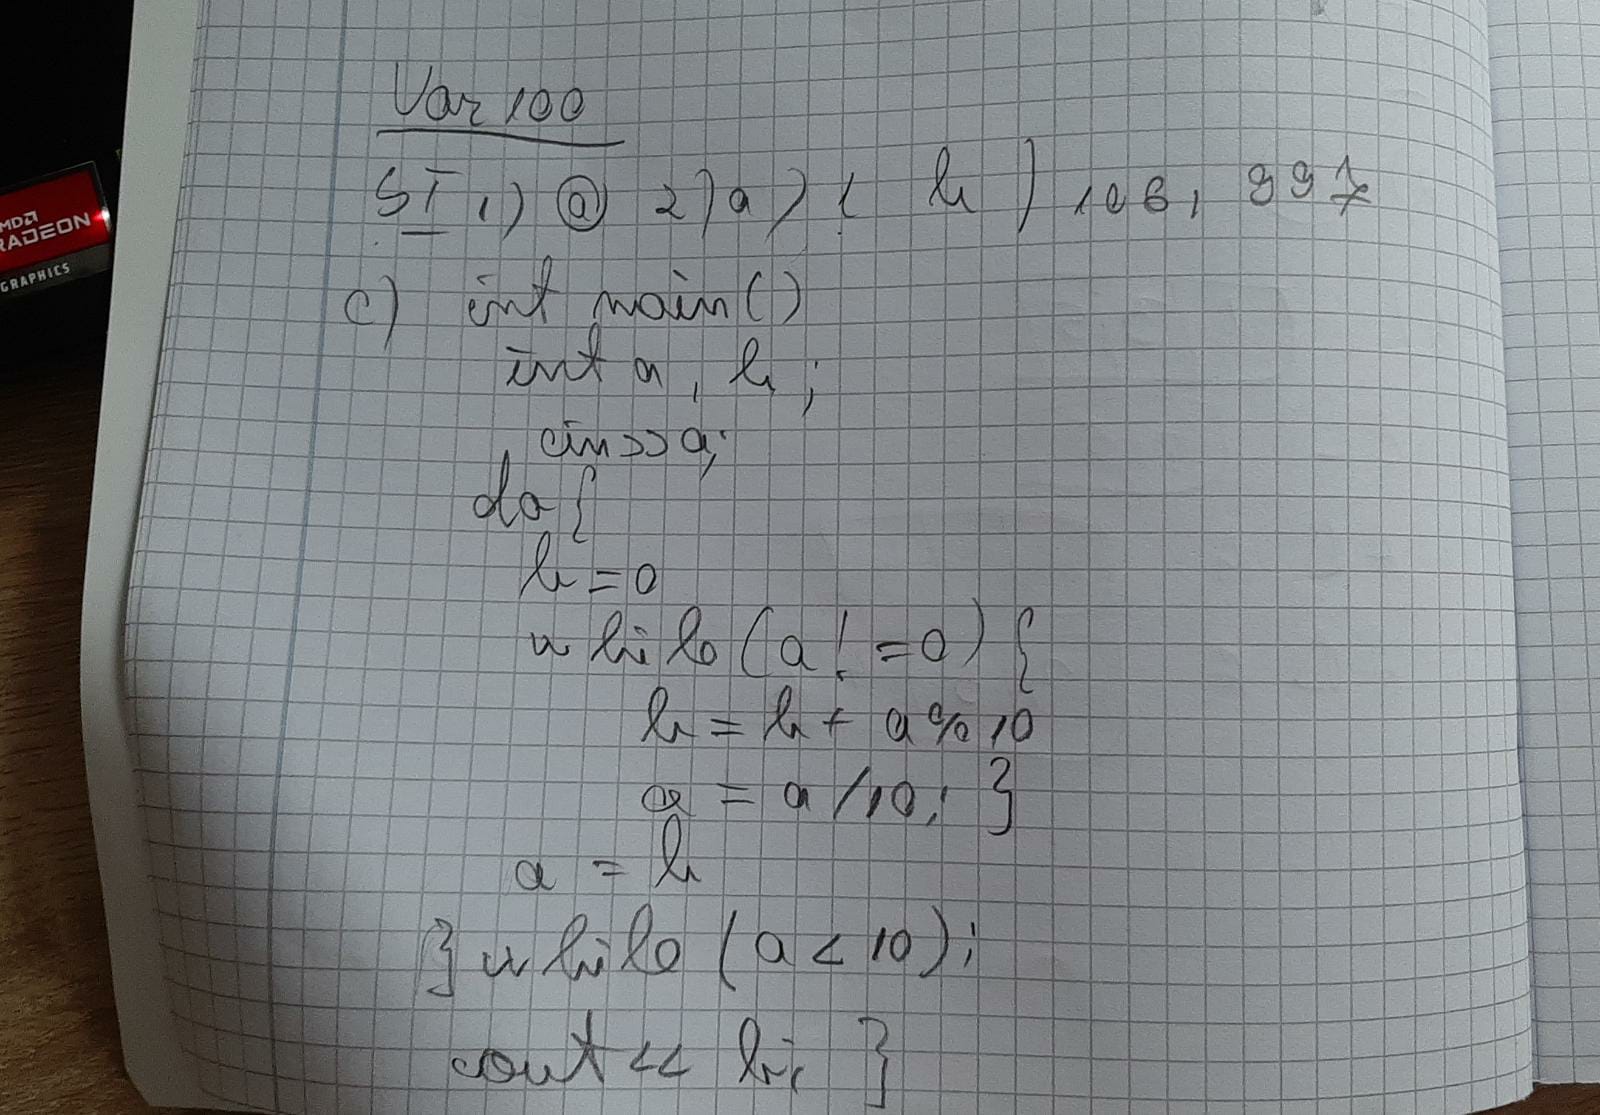 AMD
RADEON
GRAPHICS
Var 100
SI 1) a 2) a) 1 b) 106, 997
c) int main()
int a, b;
cin>>a;
do{
b=0
while(a!=0){
b=b+a%10
a=a/10; }
a=b
}while(a<10);
cout<<b; }